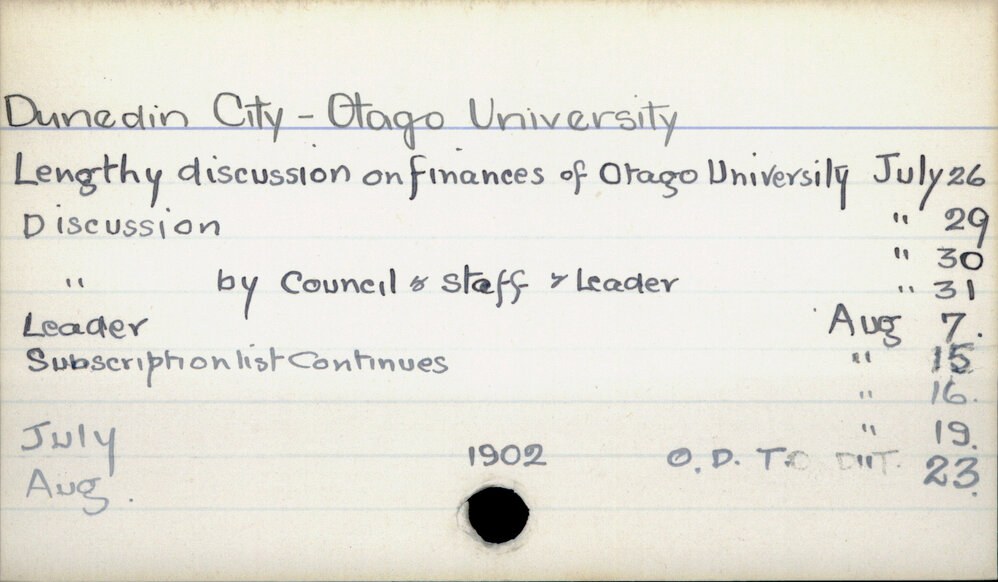 Dunedin City - Otago University
Lengthy discussion on finances of Otago University July 26
Discussion " 29
" 30
" by Council & Staff & Leader " 31
Leader Aug 7.
Subscription list Continues " 15
" 16.
July " 19.
1902 O.D.T. 23.
Aug.